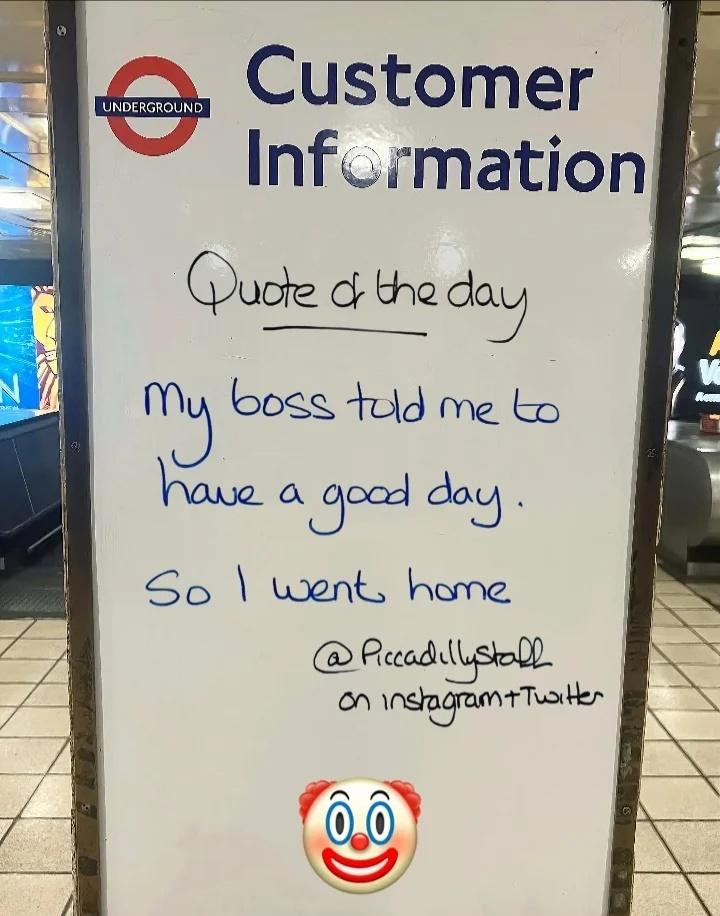 UNDERGROUND
Customer
Information
Quote of the day
My boss told me to
have a good day.
So I went home
@PiccadillyStaff
on instagram+Twitter
N